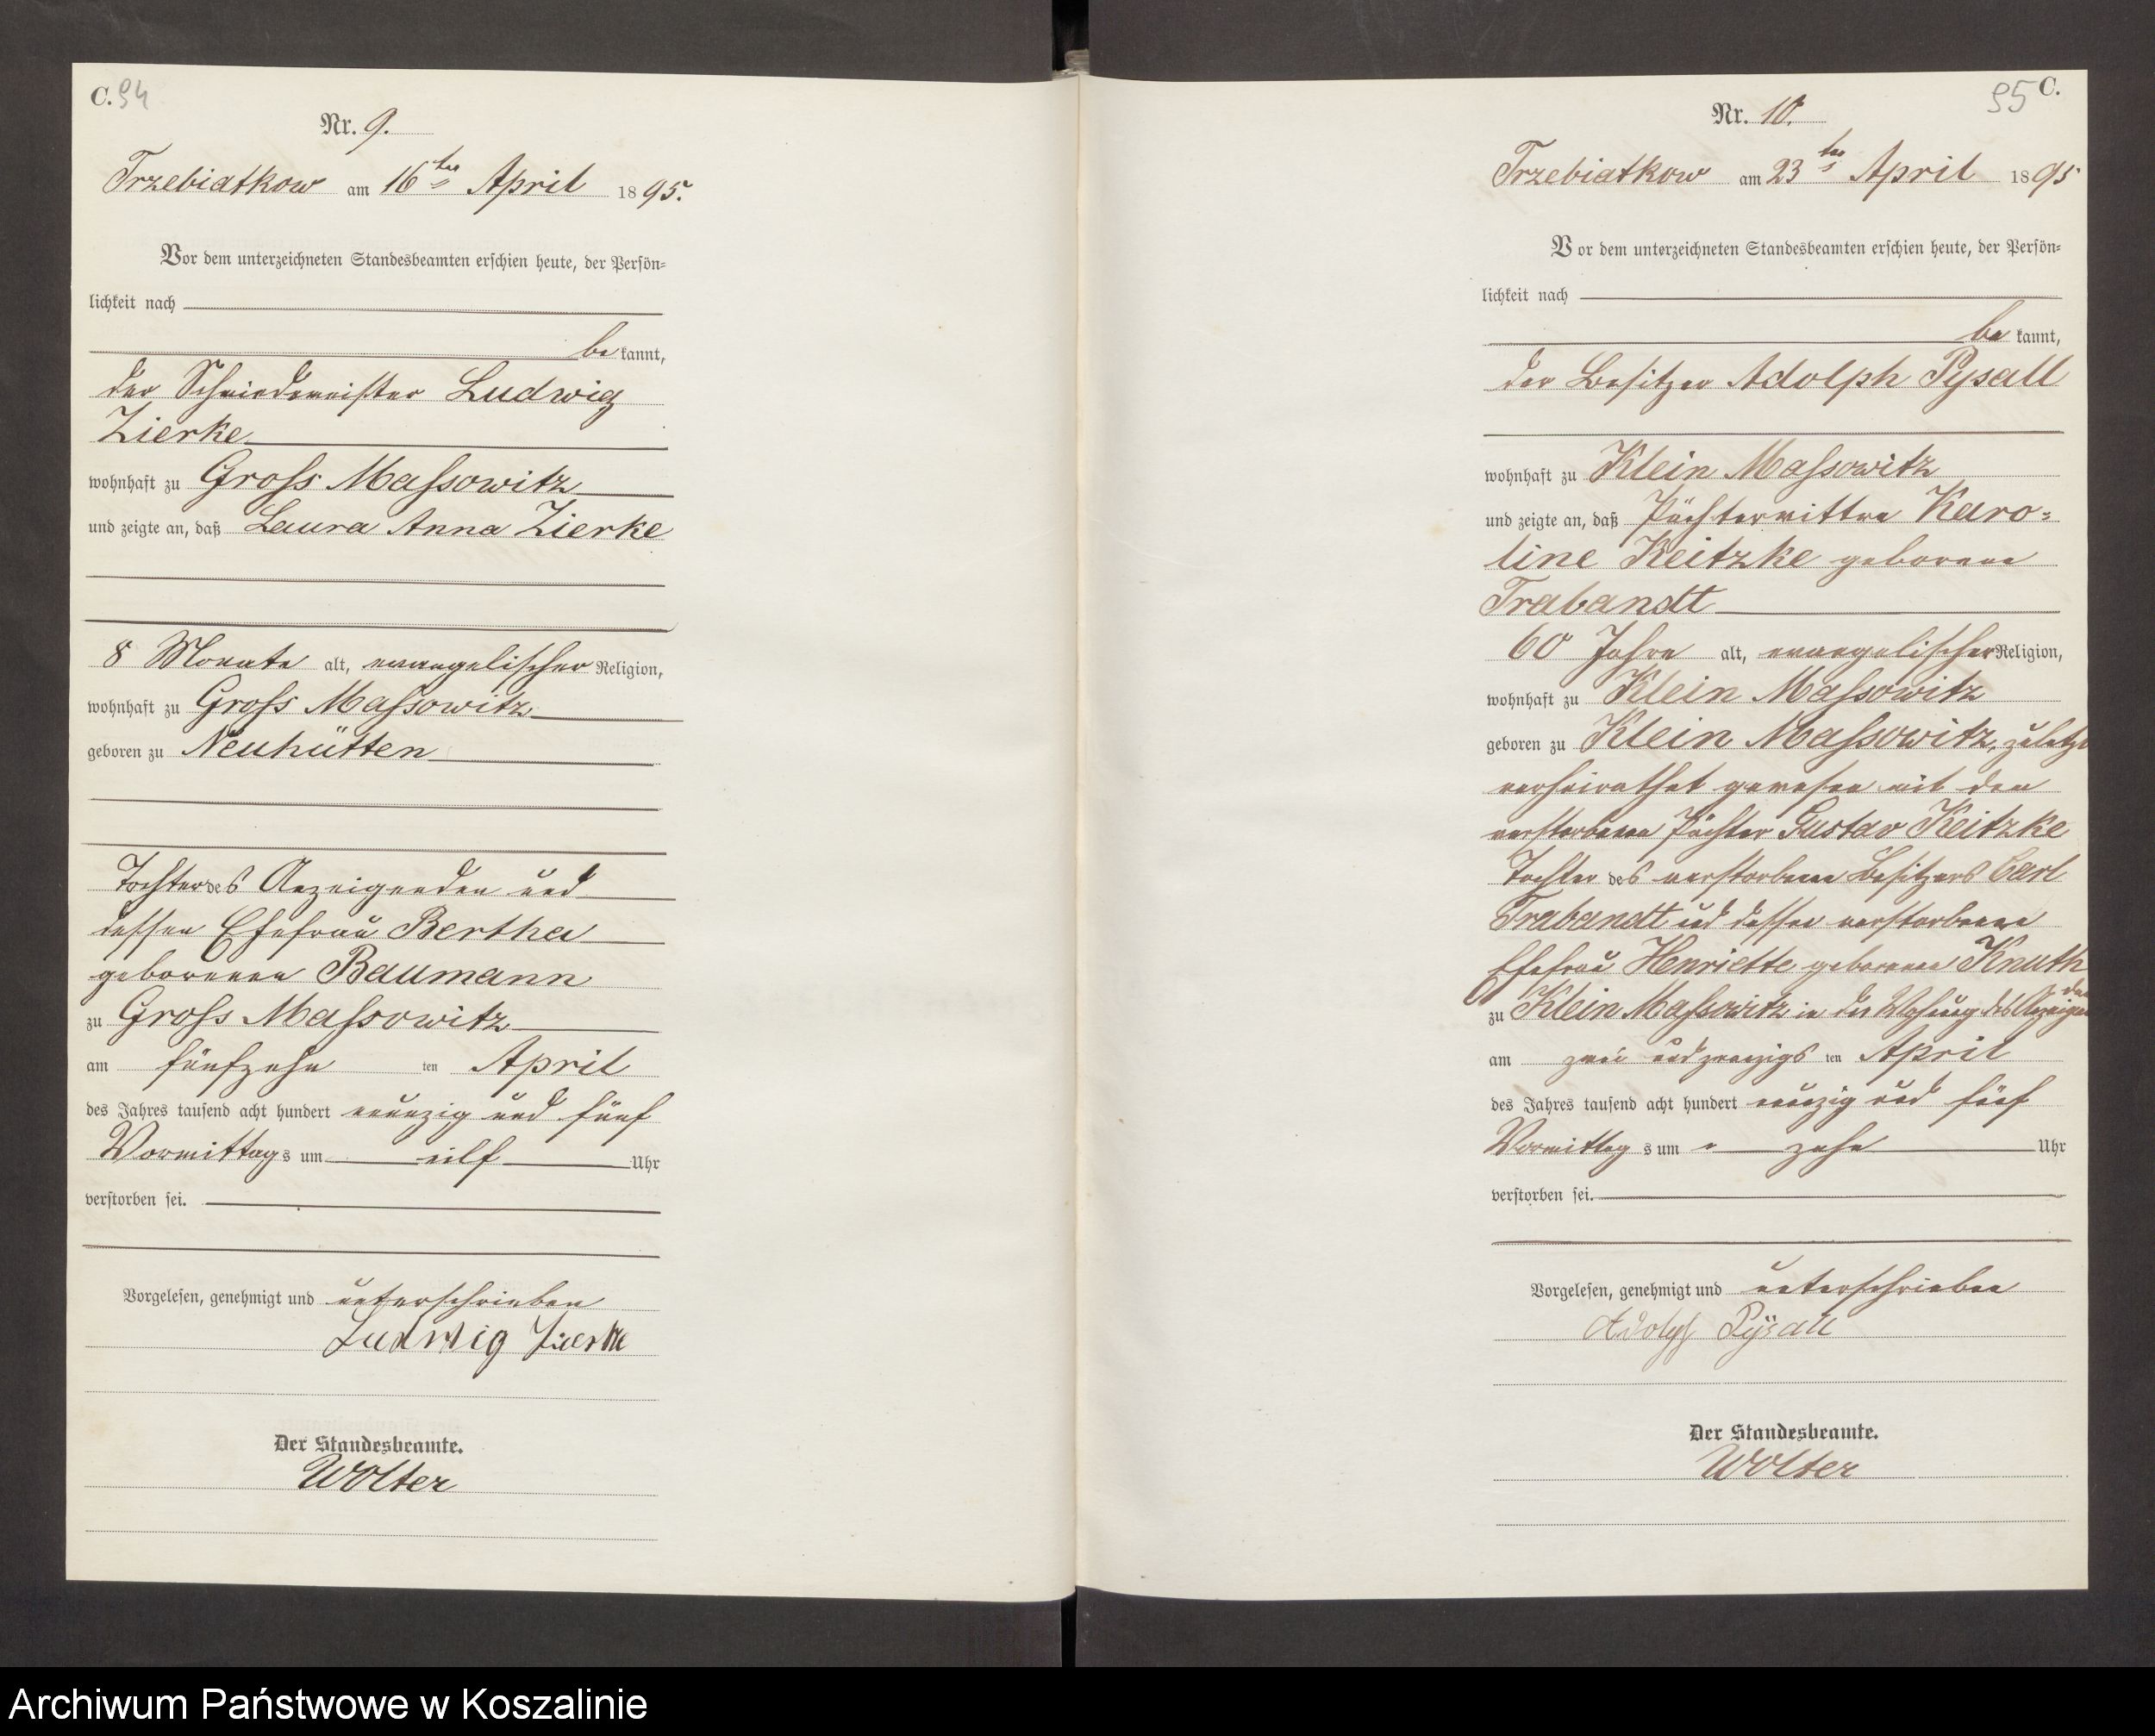 C. 94
Nr. 9.
Trzebiatkow am 16ten April 1895.
Vor dem unterzeichneten Standesbeamten erschien heute, der Persön-
lichkeit nach
be kannt,
der Schmiedemeister Ludwig
Zierke
wohnhaft zu Gross Massowitz
und zeigte an, daß Laura Anna Zierke
8 Monate alt, evangelischer Religion,
wohnhaft zu Gross Massowitz
geboren zu Neuhütten
Tochter des Anzeigenden und
dessen Ehefrau Bertha
geborenen Baumann
zu Gross Massowitz
am fünfzehn ten April
des Jahres tausend acht hundert neunzig und fünf
Vormittags um eilf Uhr
verstorben sei.
Vorgelesen, genehmigt und unterschrieben
Ludwig Zierke
Der Standesbeamte.
Wolter
95 C.
Nr. 10.
Trzebiatkow am 23ten April 1895
Vor dem unterzeichneten Standesbeamten erschien heute, der Persön-
lichkeit nach
be kannt,
der Besitzer Adolph Pysall
wohnhaft zu Klein Massowitz
und zeigte an, daß Pächterwittwe Karo-
line Keitzke geborene
Trabandt
60 Jahre alt, evangelischer Religion,
wohnhaft zu Klein Massowitz
geboren zu Klein Massowitz, zuletzt
verheirathet gewesen mit dem
verstorbenen Pächter Gustav Keitzke
Tochter des verstorbenen Besitzers Carl
Trabandt und dessen verstorbenen
Ehefrau Henriette geborenen Knuth
zu Klein Massowitz in der Wohnung des Anzeigenden
am zwei und zwanzigs ten April
des Jahres tausend acht hundert neunzig und fünf
Vormittag s um zehn Uhr
verstorben sei.
Vorgelesen, genehmigt und unterschrieben
Adolph Pysall
Der Standesbeamte.
Wolter
Archiwum Państwowe w Koszalinie